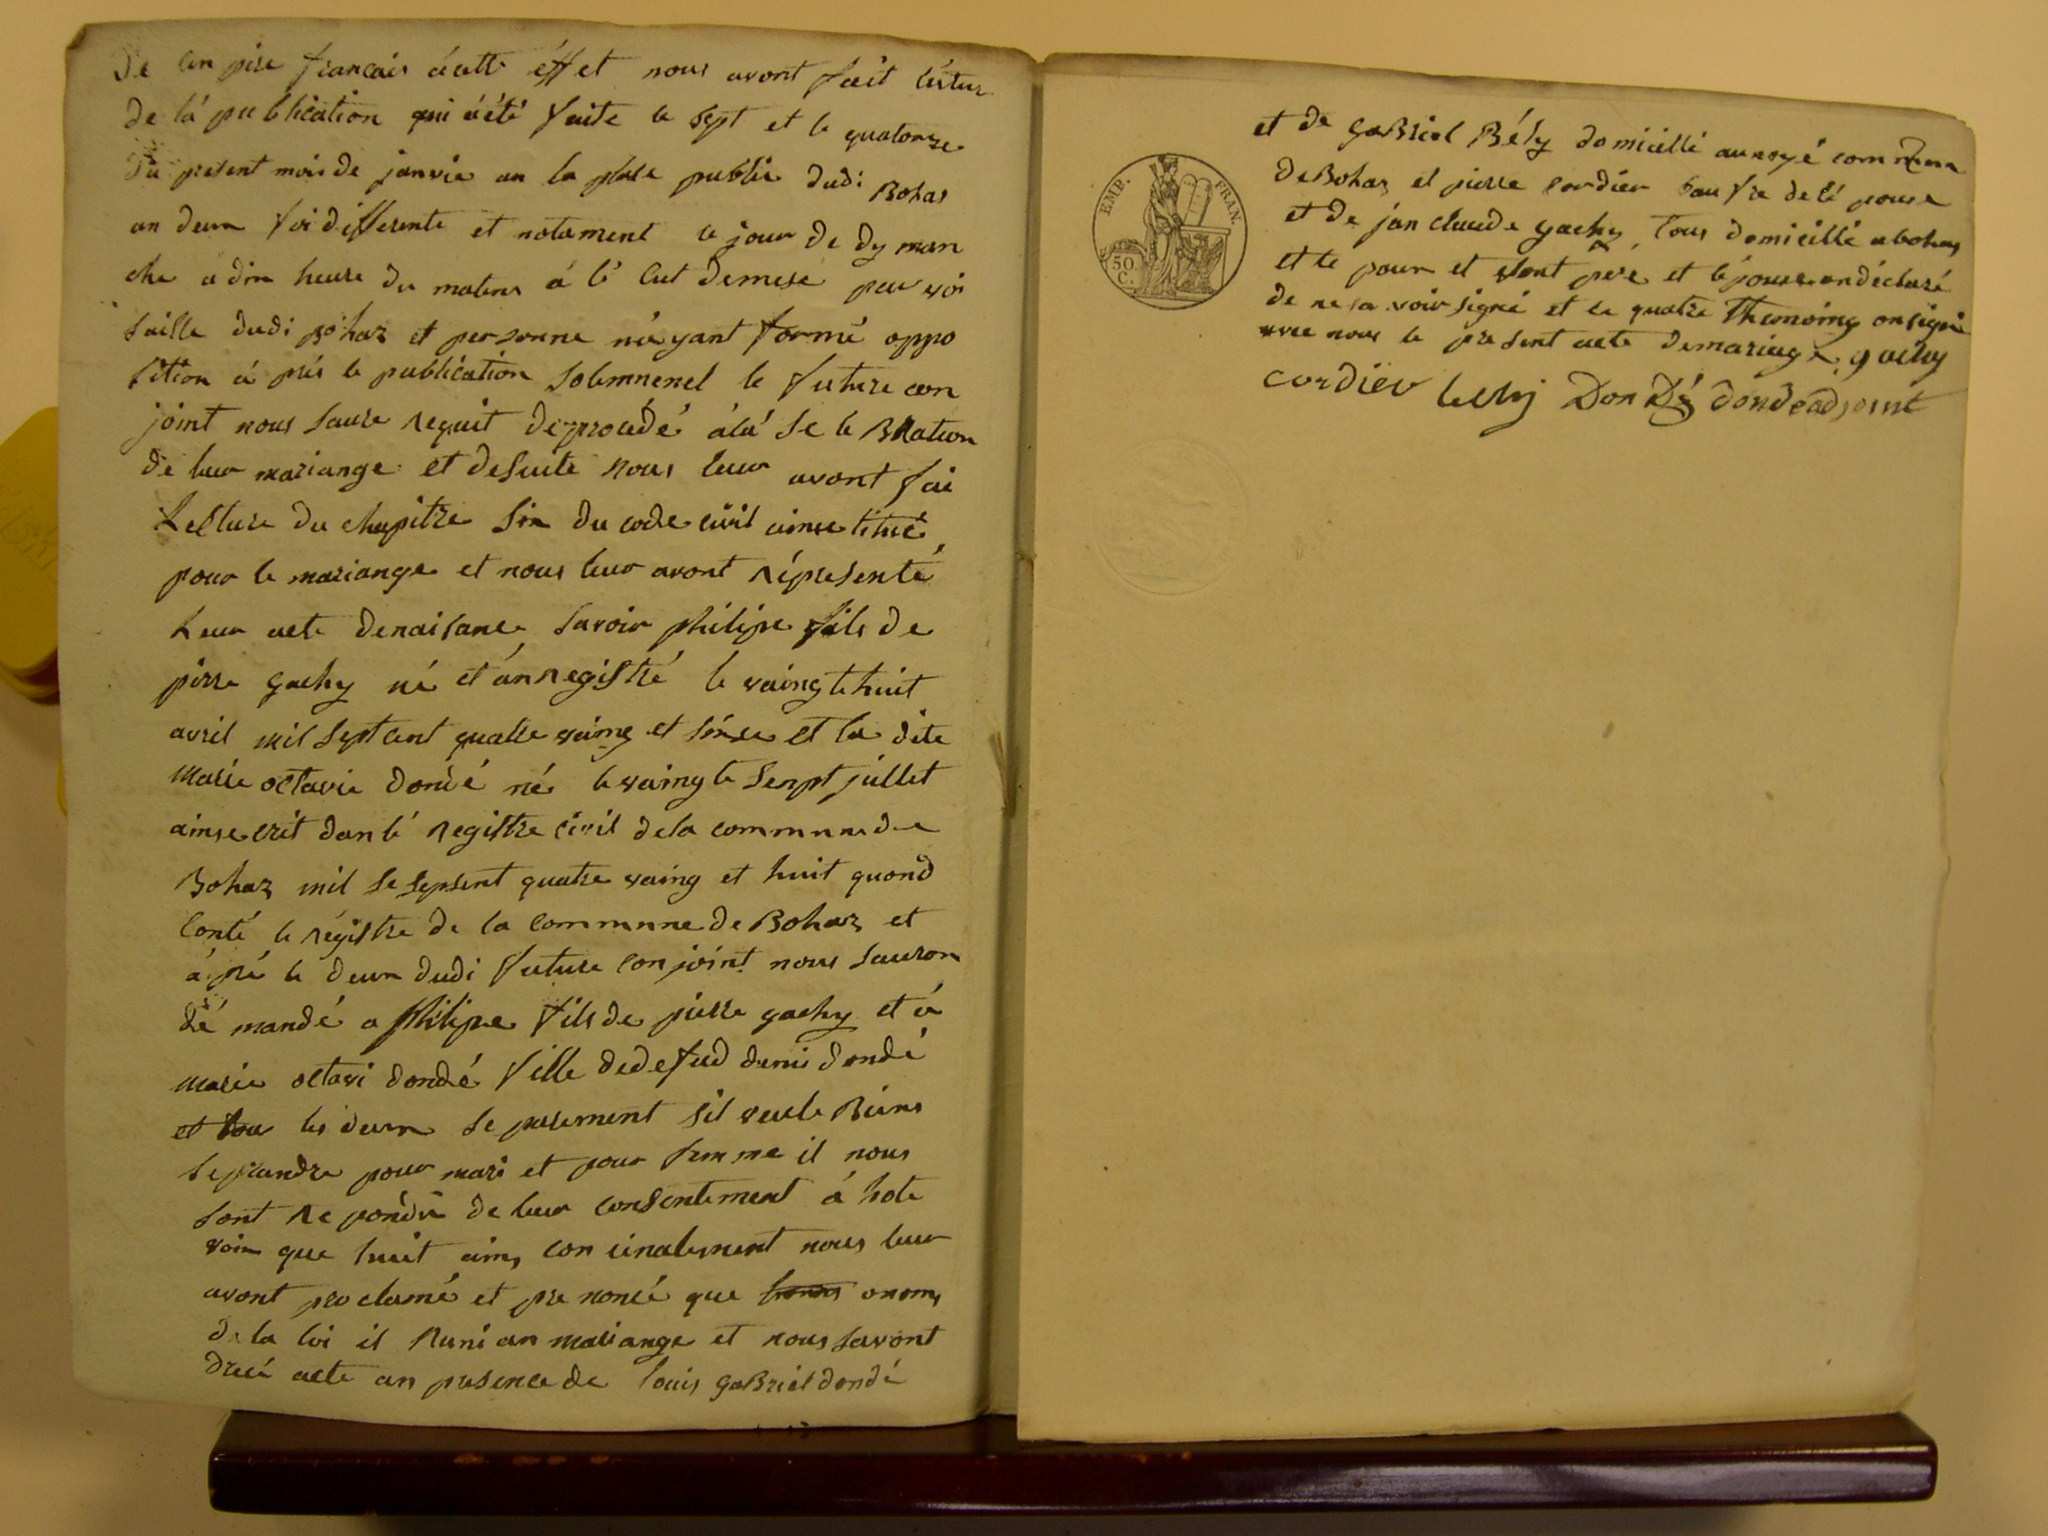 De lan pire francais àcette éffet nous avont fait lectur
de là publication qui àété faite le sept et le quatorze
Du present mois de janvie an la plase public dudi Bohas
an deux foi differente et notament le jour de dy man
che a dix heure du matins
saille dudi Bohaz et personne néyant formé oppo
sition à prés le publication solemnenel le future con
joint nous saure requit deprocédé àlà se le Bration
de leur mariange et desuite nous leur avont fai
Lecture du chapitre six du code civil
pour le mariange et nous leur avont répresenté
Leur acte denaisance savoir philipe fils de
pierre gachy né et ànregistré le vaingtehuit
avril mil septcent quatre vaing et sinse et la dite
Marie octavie dondé né le vaingte senpt jullet
ainse crit dan lé registre civil dela commune de
Bohaz mil se sepsent quatre vaing et huit quond
le régistre de la commune de Bohaz et
à pré le deux dudi future conjoint nous sauron
dé mandé a philipe fils de pierre gachy et à
marie octavi dondé fille dedefud denis dondé
les deux se parement sil veule Biens
se prandre pour mari et pour femme il nous
sont re pondu de leur consentement à hote
voix que huit ains, con cinalement nous leur
avont proclamé et pre noncé que onom
de la loi il sunian mariange et nous savont
drecé acte an presence de louis gaBriel dondé
et de gaBriel Bély domicillé aunoyé commun
de Bohas et pierre cordier Bau fre de lé pouse
et de jan claude gachy tous domicillé abohas
et le pour et sont pere et lépouse ondéclaré
de ne sa voir signé et le quatre themoing onsigné
avec nous le present acte demariage gachy
cordier bely Don Dé dondé adjoint
EMP. FRAN.
50.
C.